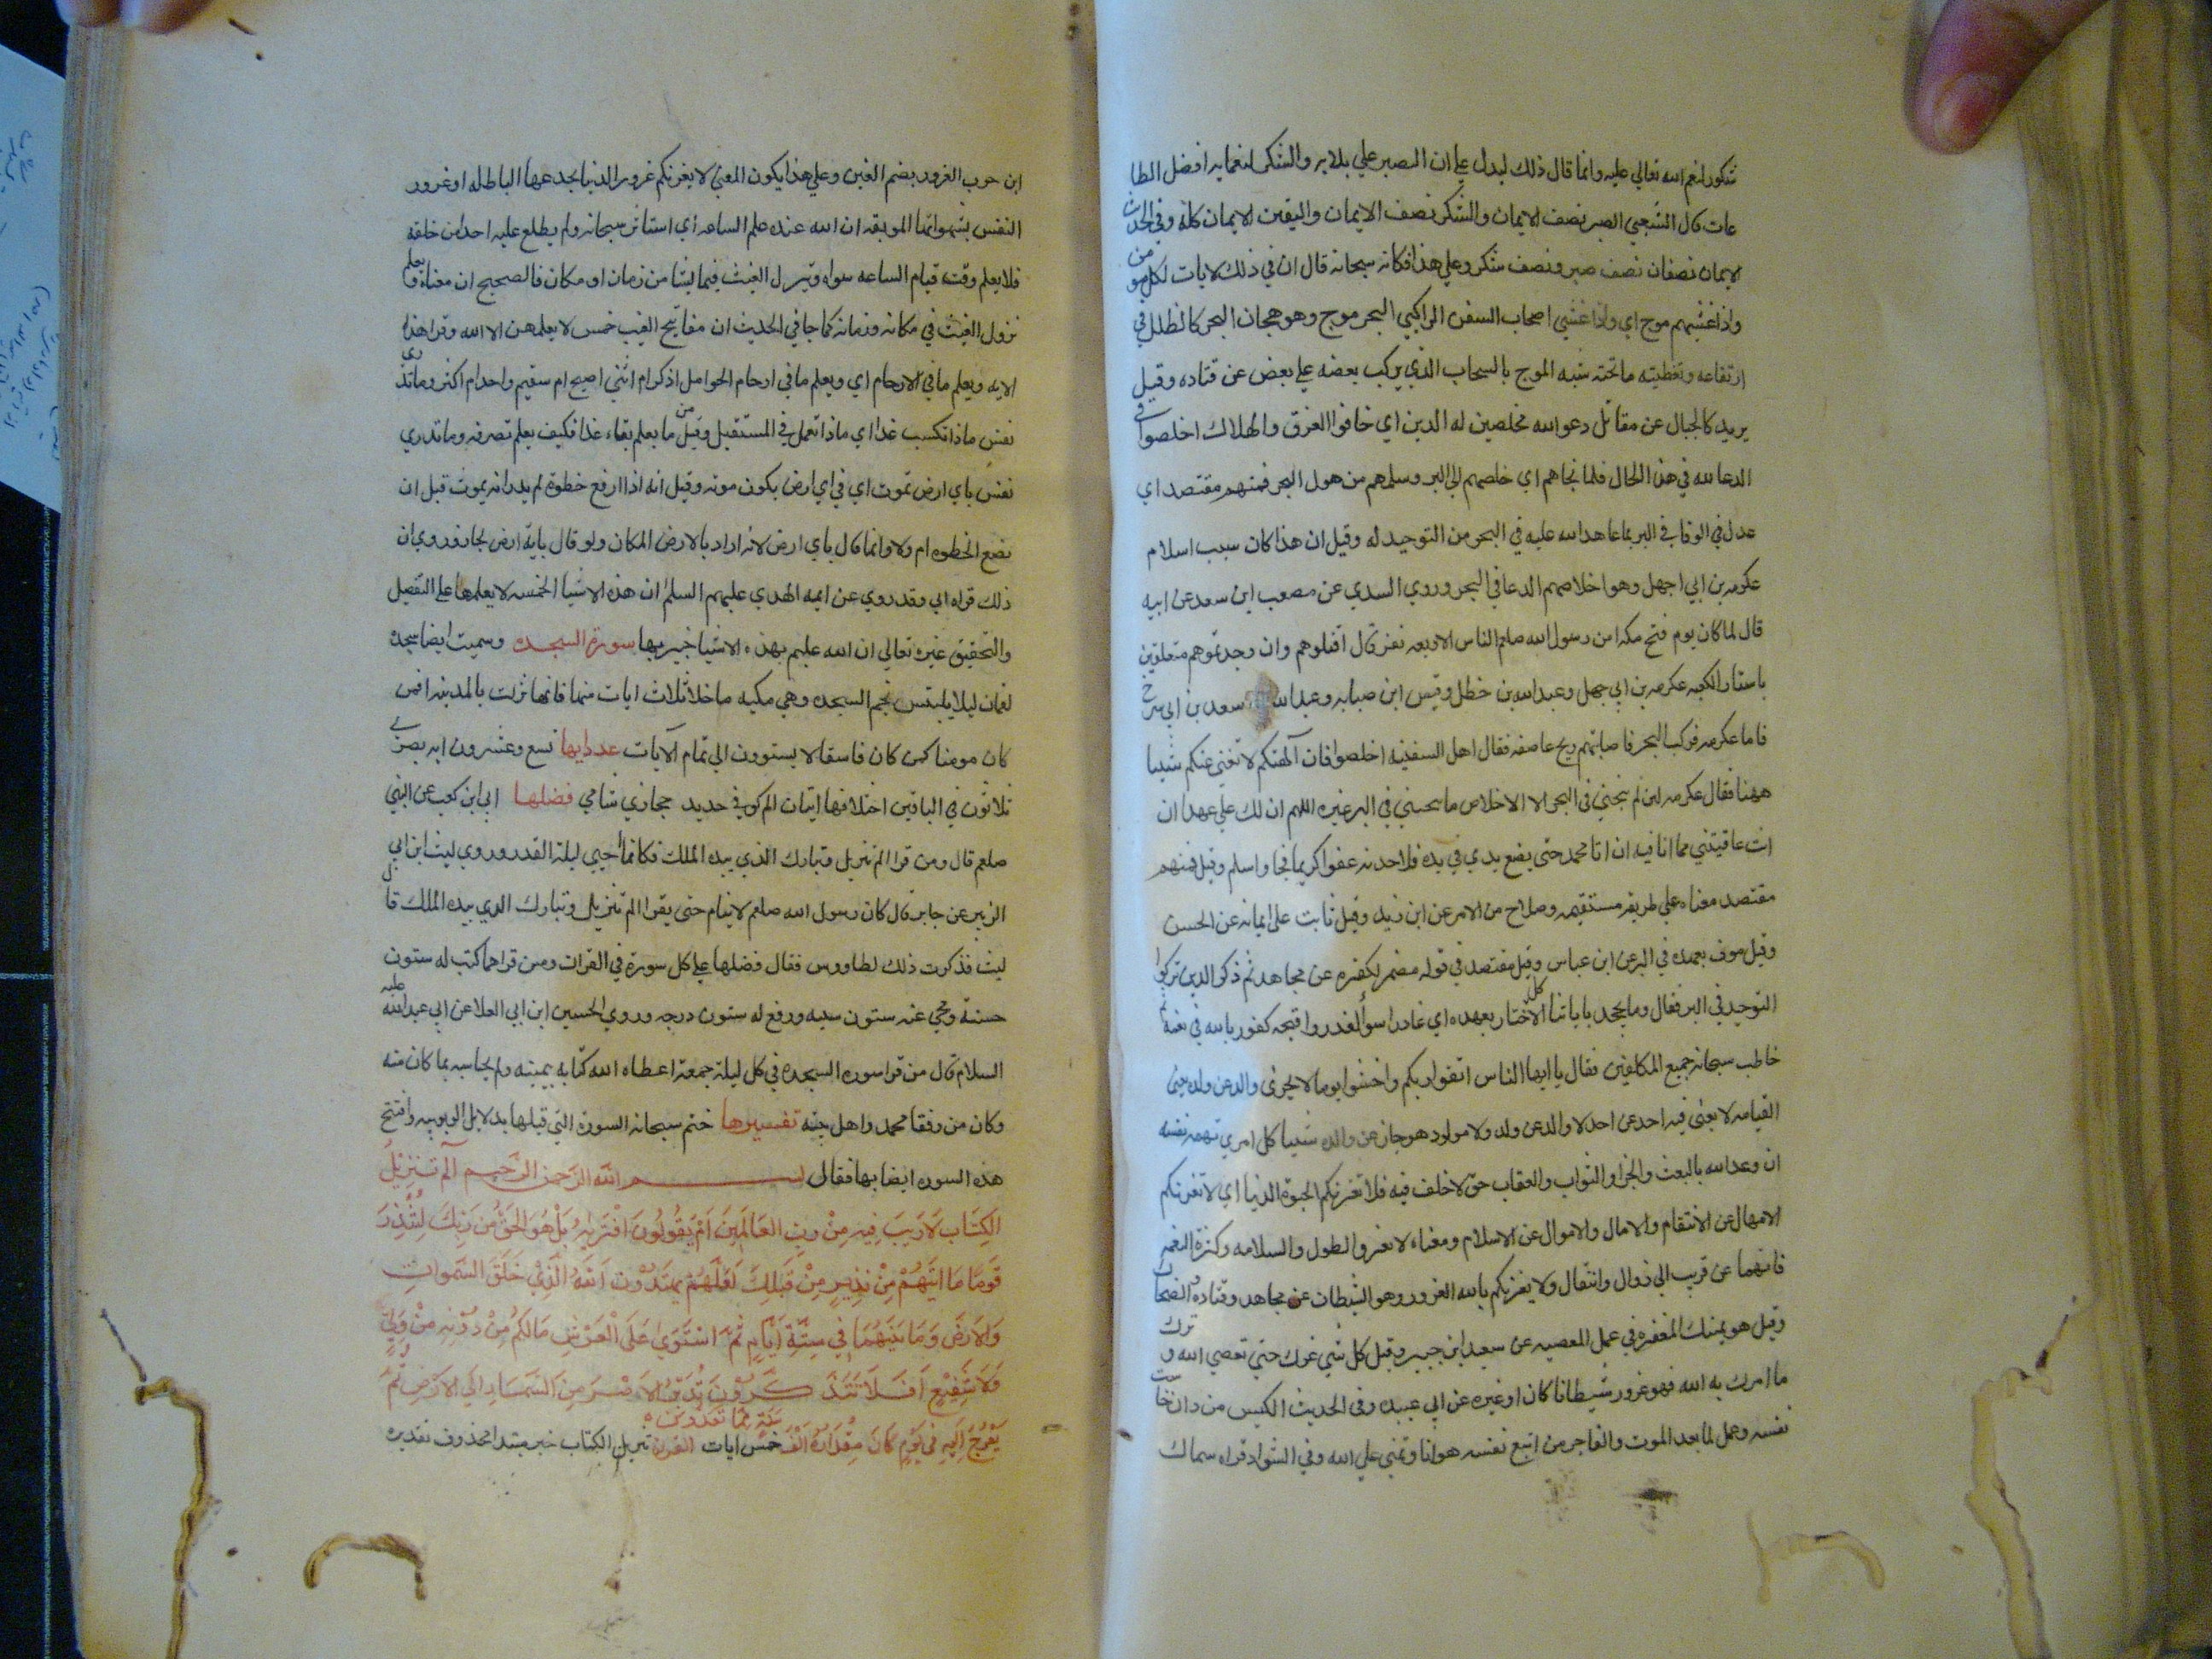 شكور لنعم الله تعالي عليه وانما قال ذلك ليدل علي ان الصبر علي بلايه والشكر لنعمايه افضل الطا
عات قال الشعبي الصبر نصف الايمان والشكر نصف الايمان واليقين الايمان كله وفي الحديث
الايمان نصفان نصف صبر ونصف شكر وعلي هذا فكانه سبحانه قال ان في ذلك لايات لكل مومن
واذا غشيهم موج اي واذا غشي اصحاب السفن الراكبي البحر موج وهو هيجان البحر كالظلل في
ارتفاعه وتغطيته ما تحته شبه الموج بالسحاب الذي يركب بعضه علي بعض عن قتاده وقيل
يريد كالجبال عن مقاتل دعوا الله مخلصين له الدين اي خافوا الغرق والهلاك اخلصوا في
الدعا لله في هذا الحال فلما نجاهم اي خلصهم الي البر وسلمهم من هول البحر فمنهم مقتصد اي
عدل في الوفا في البر بما عاهد الله عليه في البحر من التوحيد له وقيل ان هذا كان سبب اسلام
عكرمه بن ابي اجهل وهو اخلاصهم الدعا في البحر وروي السدي عن مصعب ابن سعد عن ابيه
قال لما كان يوم فتح مكه امن رسول الله صلعم الناس الا اربعه نفر قال اقتلوهم وان وجدتموهم متعلقين
باستار الكعبه عكرمه بن ابي جهل وعبد الله بن خطل وقيس ابن صبابه وعبد الله سعد بن ابي سرح
فاما عكرمه فركب البحر فاصابتهم ريح عاصفه فقال اهل السفينه اخلصوا فان آلهتكم لا تغني عنكم شيئا
ههنا فقال عكرمه لين لم ينجني في البحر الا الاخلاص ما ينجيني في البر غيره اللهم ان لك علي عهدا ان
انت عافيتني مما انا فيه ان اتا محمد حتي يضع يدي في يده فلاجدنه عفوا كريما فجا واسلم وقيل فمنهم
مقتصد معناه علي طريقه مستقيمه وصلاح من الامر عن ابن زيد وقيل ثابت علي ايمانه عن الحسن
وقيل موف بعهده في البر عن ابن عباس وقيل مقتصد في قوله مضمر لكفره عن مجاهد ثم ذكر الدين تركوا
التوحيد في البر فقال وما يجحد باياتنا الا كل ختار بعهده اي غادر اسوا الغدر واقبحه كفور بالله في نعمه ثم
خاطب سبحانه جميع المكلفين فقال يا ايها الناس اتقوا ربكم واخشوا يوما لا يجزي والد عن ولده يعني
القيامه لا يغني فيه احد عن احد لا والد عن ولد ولا مولود هو جاز عن والده شيئا كل امري تهمه نفسه
ان وعد الله بالبعث والجزا والثواب والعقاب حق لا خلف فيه فلا تغرنكم الحيوة الدنيا اي لا تغرنكم
الامهال عن الانتقام والامال والاموال عن الاسلام ومعناه لا تغتروا بطول السلامه وكثرة النعمه
فانهما عن قريب الي زوال وانتقال ولا يغرنكم بالله الغرور وهو الشيطان عن مجاهد وقتاده والضحاك
وقيل هو تمنيك المغفره في عمل المعصيه عن سعيد ابن جبير وقيل كل شي غرك حتي تعصي الله وترك
ما امرك به الله فهو غرور شيطانا كان او غيره عن ابي عبيده وفي الحديث الكيس من دان
نفسه وعمل لما بعد الموت والفاجر من اتبع نفسه هوانا وتمني علي الله وفي الشواذ قراه سماك
ابن حرب الغرور بضم الغين وعلي هذا يكون المعني لا يغرنكم غرور الدنيا بخدعها الباطله او غرور
النفس بشهواتها الموبقه ان الله عنده علم الساعه اي استاثر سبحانه ولم يطلع عليه احدا من خلقه
فلا يعلم وقت قيام الساعه سواه وينزل الغيث فيما يشا من زمان او مكان فالصحيح ان معناه ويعلم
نزول الغيث في مكانه وزمانه كما جا في الحديث ان مفاتيح الغيب خمس لا يعلمهن الا الله وقرا هذه
الايه ويعلم ما في الارحام اي ويعلم ما في ارحام الحوامل اذكر ام انثي اصحيح ام سقيم واحد ام اكثر وما تدري
نفس ماذا تكسب غدا اي ماذا تعمل في المستقبل وقيل ما يعلم بقاءه غدا فكيف يعلم تصرفه وما تدري
نفس باي ارض تموت اي في اي ارض يكون موته وقيل انه اذا رفع خطوة لم يدر انه يموت قبل ان
يضع الخطوه ام لا وانما قال باي ارض لانه اراد بالارض المكان ولو قال باية ارض لجاز وروي ان
ذلك قراه ابي وقد روي عن ايمه الهدي عليهم السلم ان هذه الاشيا الخمسه لا يعلمها علي التفصيل
والتحقيق غيره تعالي ان الله عليم بهذه الاشيا خبير بها سورة السجده وسميت ايضا سجده
لقمان ليلا يلتبس بحم السجده وهي مكيه ما خلا ثلاث ايات منها فانها نزلت بالمدينه افمن
كان مومنا كمن كان فاسقا لا يستوون الي تمام الآيات عدد ايها تسع وعشرون ايه بصري
ثلاثون في الباقين اختلافها ايتان الم كوفي جديد حجازي شامي فضلها ابي ابن كعب عن النبي
صلعم قال ومن قرا الم تنزيل وتبارك الذي بيده الملك فكانما أحيي ليلة القدر وروي ليث ابن ابي
الزبير عن جابر قال كان رسول الله صلعم لا ينام حتي يقرا الم تنزيل وتبارك الذي بيده الملك قال
ليث فذكرت ذلك لطاووس فقال فضلها علي كل سورة في القران ومن قراهما كتب له ستون
حسنة ومحي عنه ستون سيه ورفع له ستون درجه وروي الحسين ابن ابي العلا عن ابي عبد الله عليه
السلام قال من قرا سوره السجده في كل ليلة جمعة اعطاه الله كتابه بيمينه ولم يحاسبه بما كان منه
وكان من رفقا محمد واهل بيته تفسيرها ختم سبحانه السورة التي قبلها بدلايل الربوبيه وافتتح
هذه السوره ايضا بها فقال بسم الله الرحمن الرحيم آلم تنزيل
الكِتَاب لَا رَيبَ فِيه مِنْ رب العَالَمِينَ اَمْ يَقُولُونَ افْتَرَيهُ بَلْ هُوَ الحَقُّ مِنْ رَبِّكَ لِتُنْذِرَ
قَومًا مَا اتَيهُمْ مِنْ نَذِيرٍ مِنْ قَبْلِكَ لَعَلَّهُمْ يهتَدُونَ اَللهُ الَّذِي خَلَقَ السَّمواتِ
وَالاَرضَ وَمَا بَيْنَهُمَا فِي سِتَّةِ اَيَّامٍ ثُمَّ اسْتَوَي عَلَي الْعَرْشِ مَا لَكُمْ مِنْ دُوْنِه مِنْ وَلِيٍّ
وَلَا شَفِيْعٍ اَفَلَا تَتَذَكَّرُوْنَ يُدَبِّرُ الاَمْرَ مِنَ السَّمَاءِ اِلَي الاَرْضِ ثُمَّ
يَعْرُجُ اِلَيهِ فِي يَوْمٍ كَانَ مِقْدَارُهُ اَلْفَ سَنَةٍ مِمَّا تَعُدُّونَ خمس ايات تنزيل الكتاب خبر مبتدا محذوف تقديره